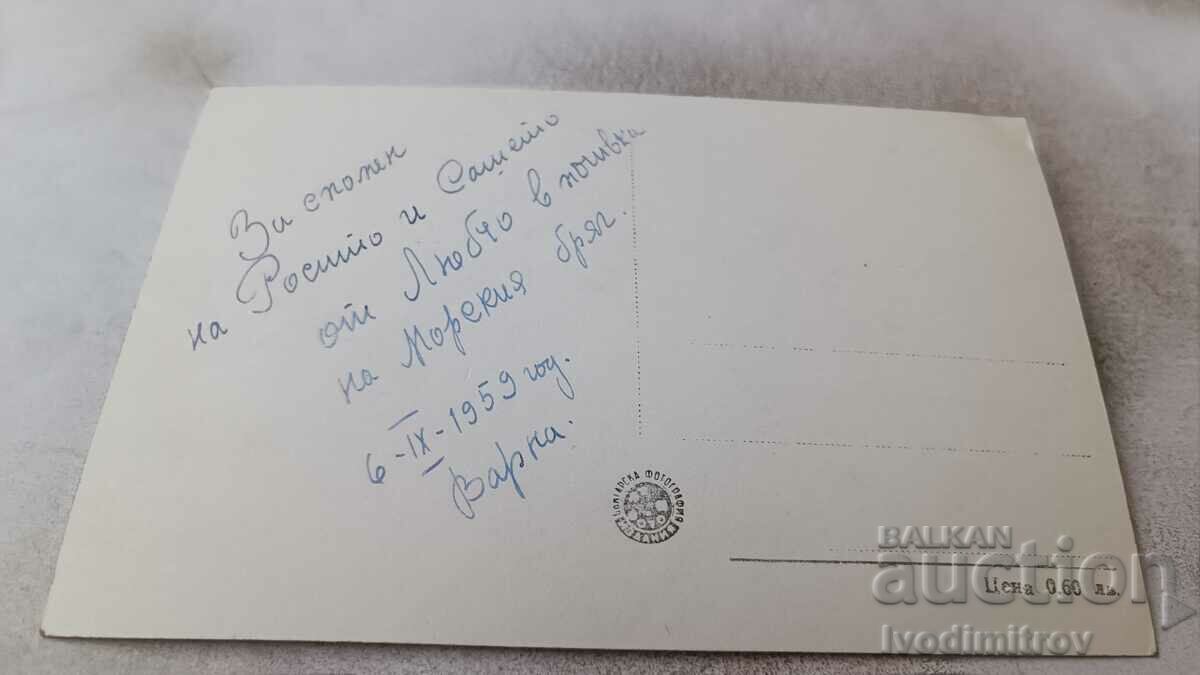 За спомен
на Росито и Сашето
от Любчо в почивка
на Морския бряг.
6-IX-1959 год.
Варна.
БЪЛГАРСКА ФОТОГРАФИЯ
Цена 0.60 лв.
BALKAN
auction
Ivodimitrov